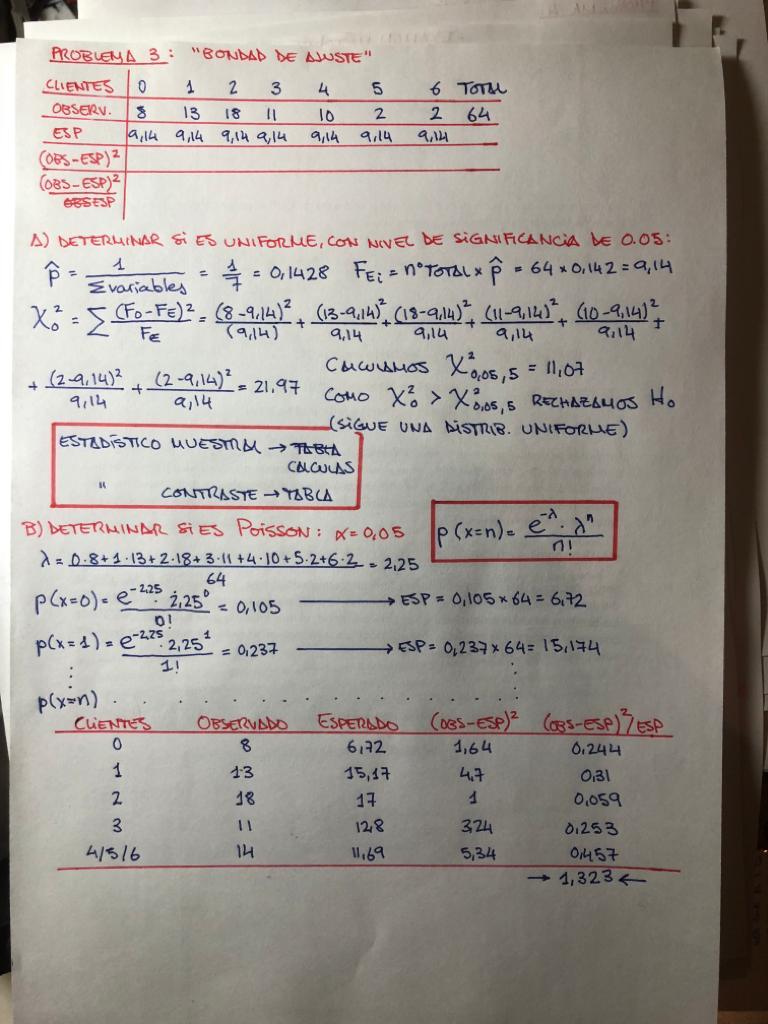 PROBLEMA 3: "BONDAD DE AJUSTE"
CLIENTES 0 1 2 3 4 5 6 TOTAL
OBSERV. 8 13 18 11 10 2 2 64
ESP 9,14 9,14 9,14 9,14 9,14 9,14 9,14
(OBS-ESP)²
(OBS-ESP)² / ESP
A) DETERMINAR SI ES UNIFORME, CON NIVEL DE SIGNIFICANCIA DE 0.05:
p̂ = 1 / Σvariables = 1/7 = 0,1428 FEi = nº TOTAL x p̂ = 64 x 0,142 = 9,14
χ₀² = Σ (Fo-FE)² / FE = (8-9,14)² / (9,14) + (13-9,14)² / 9,14 + (18-9,14)² / 9,14 + (11-9,14)² / 9,14 + (10-9,14)² / 9,14 +
+ (2-9,14)² / 9,14 + (2-9,14)² / 9,14 = 21,97 CALCULAMOS χ²0,05,5 = 11,07
COMO χ₀² > χ²0,05,5 RECHAZAMOS Ho
(SIGUE UNA DISTRIB. UNIFORME)
ESTADÍSTICO MUESTRAL → TABLA
CALCULAS
" CONTRASTE → TABLA
B) DETERMINAR SI ES POISSON: α = 0,05
p(x=n) = e^-λ · λ^n / n!
λ = 0·8+1·13+2·18+3·11+4·10+5·2+6·2 / 64 = 2,25
p(x=0) = e^-2,25 · 2,25^0 / 0! = 0,105 → ESP = 0,105 x 64 = 6,72
p(x=1) = e^-2,25 · 2,25^1 / 1! = 0,237 → ESP = 0,237 x 64 = 15,174
⋮ ⋮
p(x=n) . . . . . . . . . . . . . . . .
CLIENTES OBSERVADO ESPERADO (OBS-ESP)² (OBS-ESP)²/ESP
0 8 6,72 1,64 0,244
1 13 15,17 4,7 0,31
2 18 17 1 0,059
3 11 12,8 3,24 0,253
4/5/6 14 11,69 5,34 0,457
→ 1,323 ←